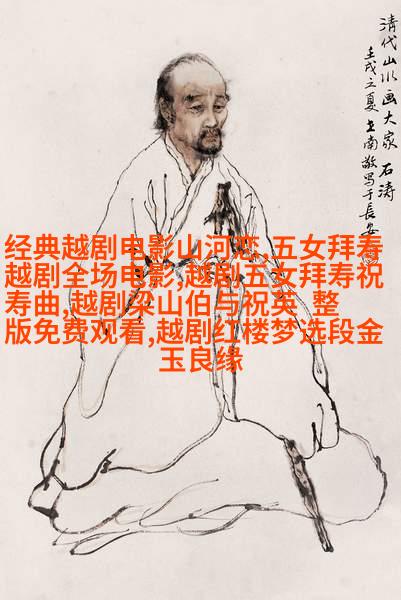 清代山水画大家 石涛
壬戌之夏 王南敬写于長安
经典越剧电影山河恋,五女拜寿
越剧全场电影,越剧五女拜寿祝
寿曲,越剧梁山伯与祝英 整
版免费观看,越剧红楼梦选段金
玉良缘